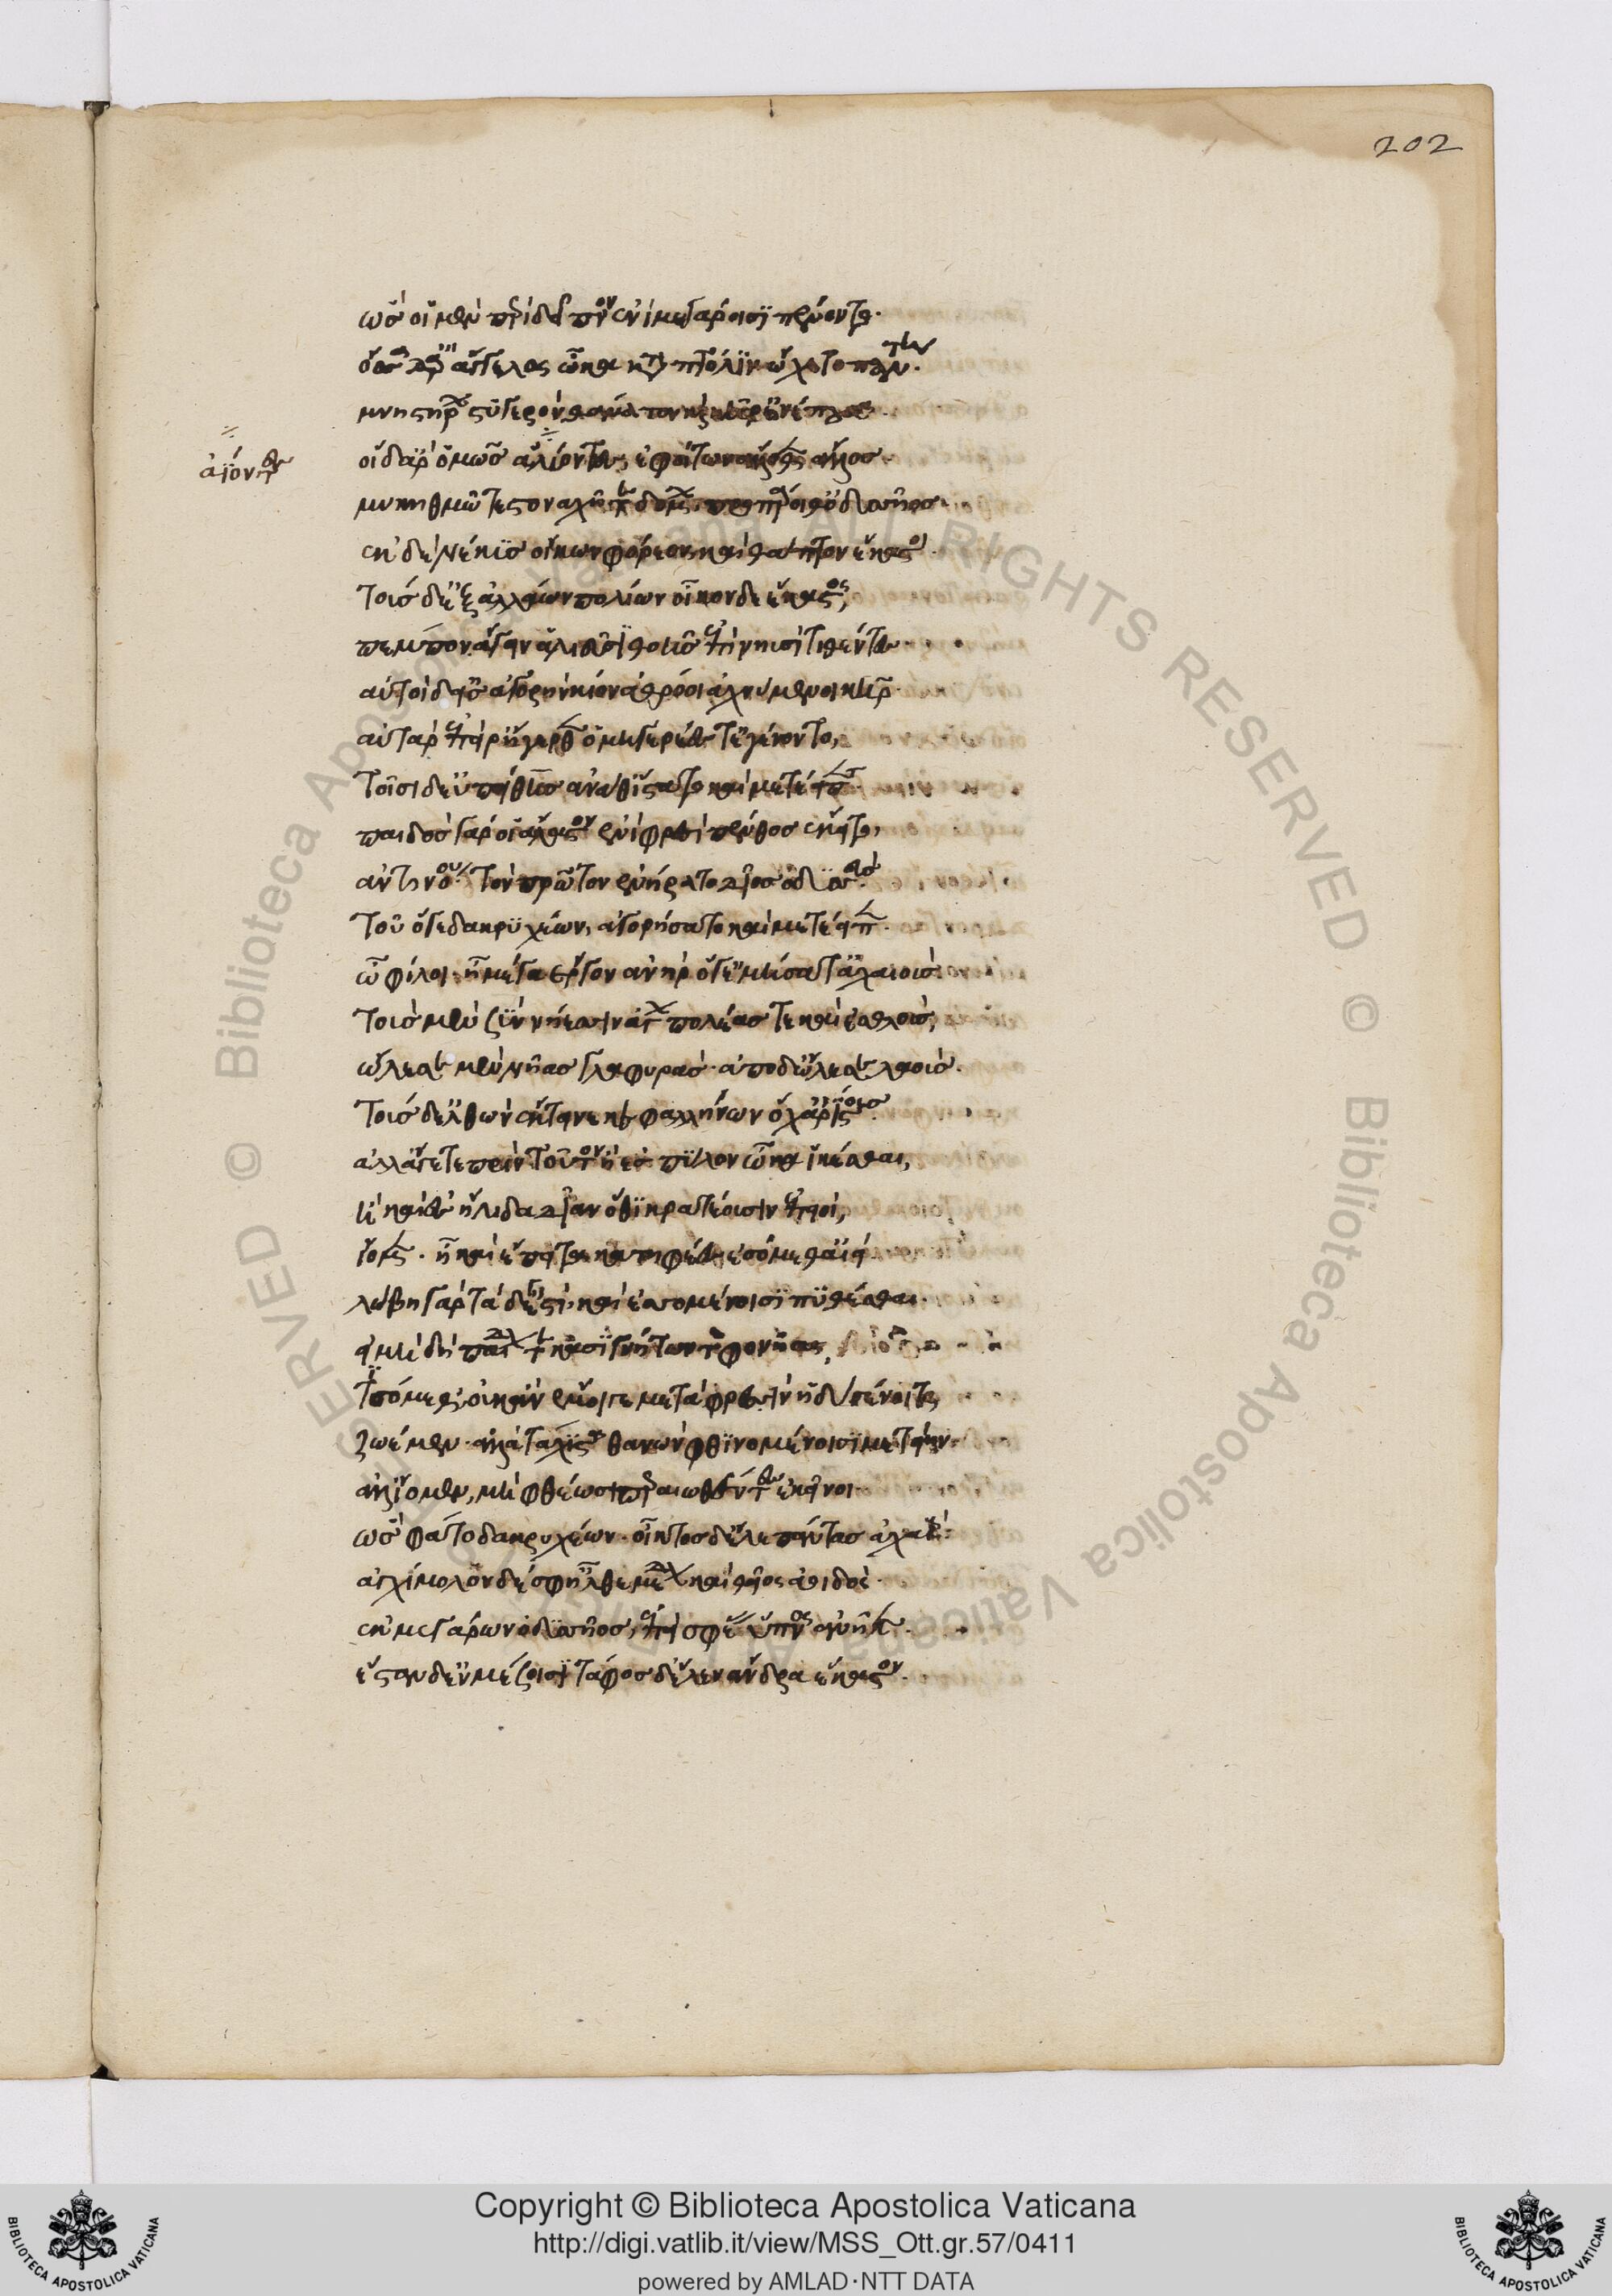 202
ὣς οἱ μὲν περὶ δεῖπνον ἐνὶ μεγάροισι πένοντο.
ὄσσα δ' ἄρ' ἄγγελος ὦκα κατὰ πτόλιν ὤχετο πάντη.
μνηστήρων στυγερὸν θάνατον καὶ κῆρ' ἐνέπουσα.
οἱ δ' ἄρ' ὁμῶς ἀΐοντες ἐφοίτων ἄλλοθεν ἄλλος.
ἀϊόντες
μυχμῷ τε στοναχῇ τε δόμων προπάροιθ' ὀδυσῆος.
ἐκ δὲ νέκυς οἴκων φόρεον καὶ θάπτον ἕκαστοι.
τοὺς δ' ἐξ ἀλλάων πολίων οἶκονδε ἕκαστον,
πέμπον ἄγειν ἁλιεῦσι θοῇς ἐπὶ νηυσὶ τιθέντες.
αὐτοὶ δ' εἰς ἀγορὴν κίον ἀθρόοι ἀχνύμενοι κῆρ.
αὐτὰρ ἐπεί ῥ' ἤγερθεν ὁμηγερέες τ' ἐγένοντο,
τοῖσι δ' εὐπείθης ἀνά θ' ἵστατο καὶ μετέειπεν.
παιδὸς γάρ οἱ ἄλαστον ἐνὶ φρεσὶ πένθος ἔκειτο,
ἀντινόου. τὸν πρῶτον ἐνήρατο δῖος ὀδυσσεύς.
τοῦ ὅγε δακρυχέων, ἀγορήσατο καὶ μετέειπεν.
ὦ φίλοι. ἦ μέγα ἔργον ἀνὴρ ὅγ' ἐμήσατ' ἀχαιούς.
τοὺς μὲν σὺν νήεσσιν ἄγων πολέας τε καὶ ἐσθλούς,
ὤλεσε μὲν νῆας γλαφυράς. ἀπὸ δ' ὤλεσε λαούς.
τοὺς δ' ἐλθὼν ἔκτεινε κεφαλλήνων ὄχ' ἀρίστους.
ἀλλ' ἄγετε πρὶν τοῦτον ἢ ἐς πύλον ὦκα ἱκέσθαι,
ἢ καὶ ἐς ἤλιδα δῖαν ὅθι κρατέουσιν ἐπειοί,
ἴομεν. ἢ καὶ ἔπειτα κατηφέες ἐσόμεθ' αἰεί.
λώβη γὰρ τάδε γ' ἐστὶ καὶ ἐσσομένοισι πυθέσθαι.
εἰ μὴ δὴ παίδων τε κασιγνήτων τε φονῆας,
τισόμεθ'. οὐκ ἂν ἔμοιγε μετὰ φρεσὶν ἡδὺ γένοιτο,
ζωέμεν. ἀλλὰ τάχιστα θανὼν φθιμένοισι μετείην.
ἀλλ' ἴομεν, μὴ φθέωσι περαιωθέντες ἐκεῖνοι.
ὣς φάτο δακρυχέων. οἶκτος δ' ἕλε πάντας ἀχαιούς.
ἀγχίμολον δέ σφ' ἦλθε μέδων καὶ θεῖος ἀοιδός.
ἐκ μεγάρων ὀδυσῆος, ἐπεί σφεας ὕπνος ἀνῆκεν.
ἔσταν δ' ἐν μέσσοισι τάφος δ' ἕλεν ἄνδρα ἕκαστον.
Copyright © Biblioteca Apostolica Vaticana
http://digi.vatlib.it/view/MSS_Ott.gr.57/0411
powered by AMLAD·NTT DATA